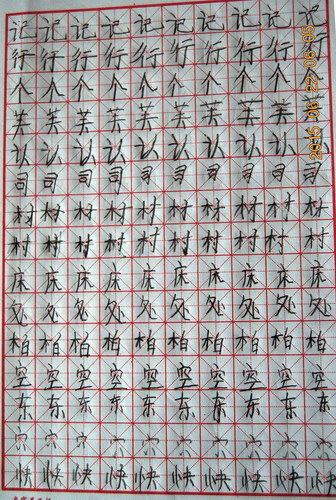 记记记记记记记记记记
行行行行行行行行行行
个个个个个个个个个个
芙芙芙芙芙芙芙芙芙芙
认认认认认认认认认认
司司司司司司司司司司
村村村村村村村村村村
村村村村村村村村村村
床床床床床床床床床床
处处处处处处处处处处
柏柏柏柏柏柏柏柏柏柏
空空空空空空空空空空
东东东东东东东东东东
快快快快快快快快快快